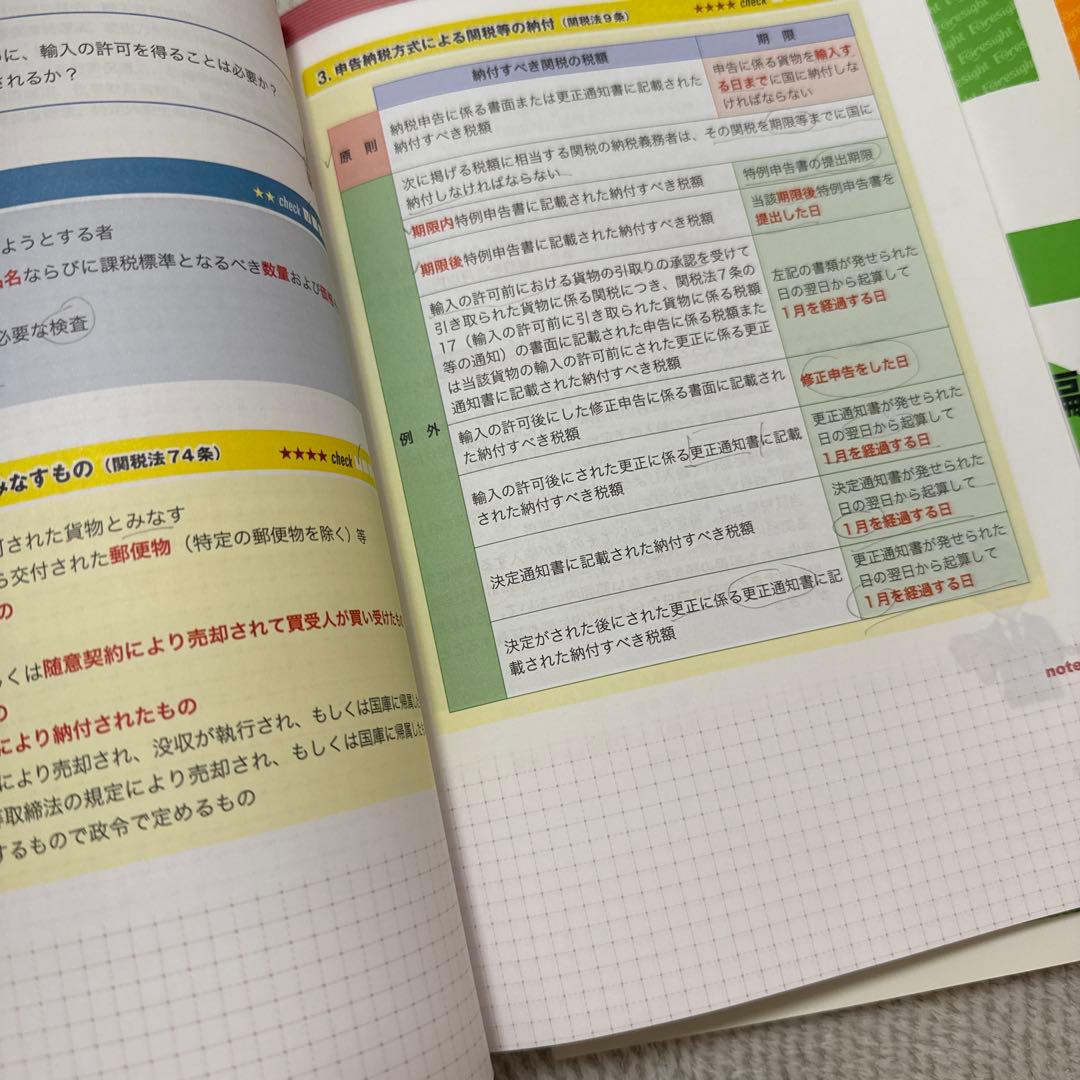 に、輸入の許可を得ることは必要か?
されるか?
★★ check
ようとする者
名ならびに課税標準となるべき数量および
必要な検査
みなすもの（関税法74条）
★★★★ check
された貨物とみなす
交付された郵便物（特定の郵便物を除く）等
の
くは随意契約により売却されて買受人が買い受けたもの
により納付されたもの
により売却され、没収が執行され、もしくは国庫に帰属し
取締法の規定により売却され、もしくは国庫に帰属した
するもので政令で定めるもの
3. 申告納税方式による関税等の納付（関税法9条）
★★★★ check
納付すべき関税の税額
期 限
原 則
納税申告に係る書面または更正通知書に記載された
納付すべき税額
申告に係る貨物を輸入す
る日までに国に納付しな
ければならない
例 外
次に掲げる税額に相当する関税の納税義務者は、その関税を期限等までに国に
納付しなければならない
期限内特例申告書に記載された納付すべき税額
特例申告書の提出期限
期限後特例申告書に記載された納付すべき税額
当該期限後特例申告書を
提出した日
輸入の許可前における貨物の引取りの承認を受けて
引き取られた貨物に係る関税につき、関税法7条の
17（輸入の許可前に引き取られた貨物に係る税額
等の通知）の書面に記載された申告に係る税額また
は当該貨物の輸入の許可前にされた更正に係る更正
通知書に記載された納付すべき税額
左記の書類が発せられた
日の翌日から起算して
1月を経過する日
輸入の許可後にした修正申告に係る書面に記載され
た納付すべき税額
修正申告をした日
輸入の許可後にされた更正に係る更正通知書に記載
された納付すべき税額
更正通知書が発せられた
日の翌日から起算して
1月を経過する日
決定通知書に記載された納付すべき税額
決定通知書が発せられた
日の翌日から起算して
1月を経過する日
決定がされた後にされた更正に係る更正通知書に記
載された納付すべき税額
更正通知書が発せられた
日の翌日から起算して
1月を経過する日
note
Foresight Foresight